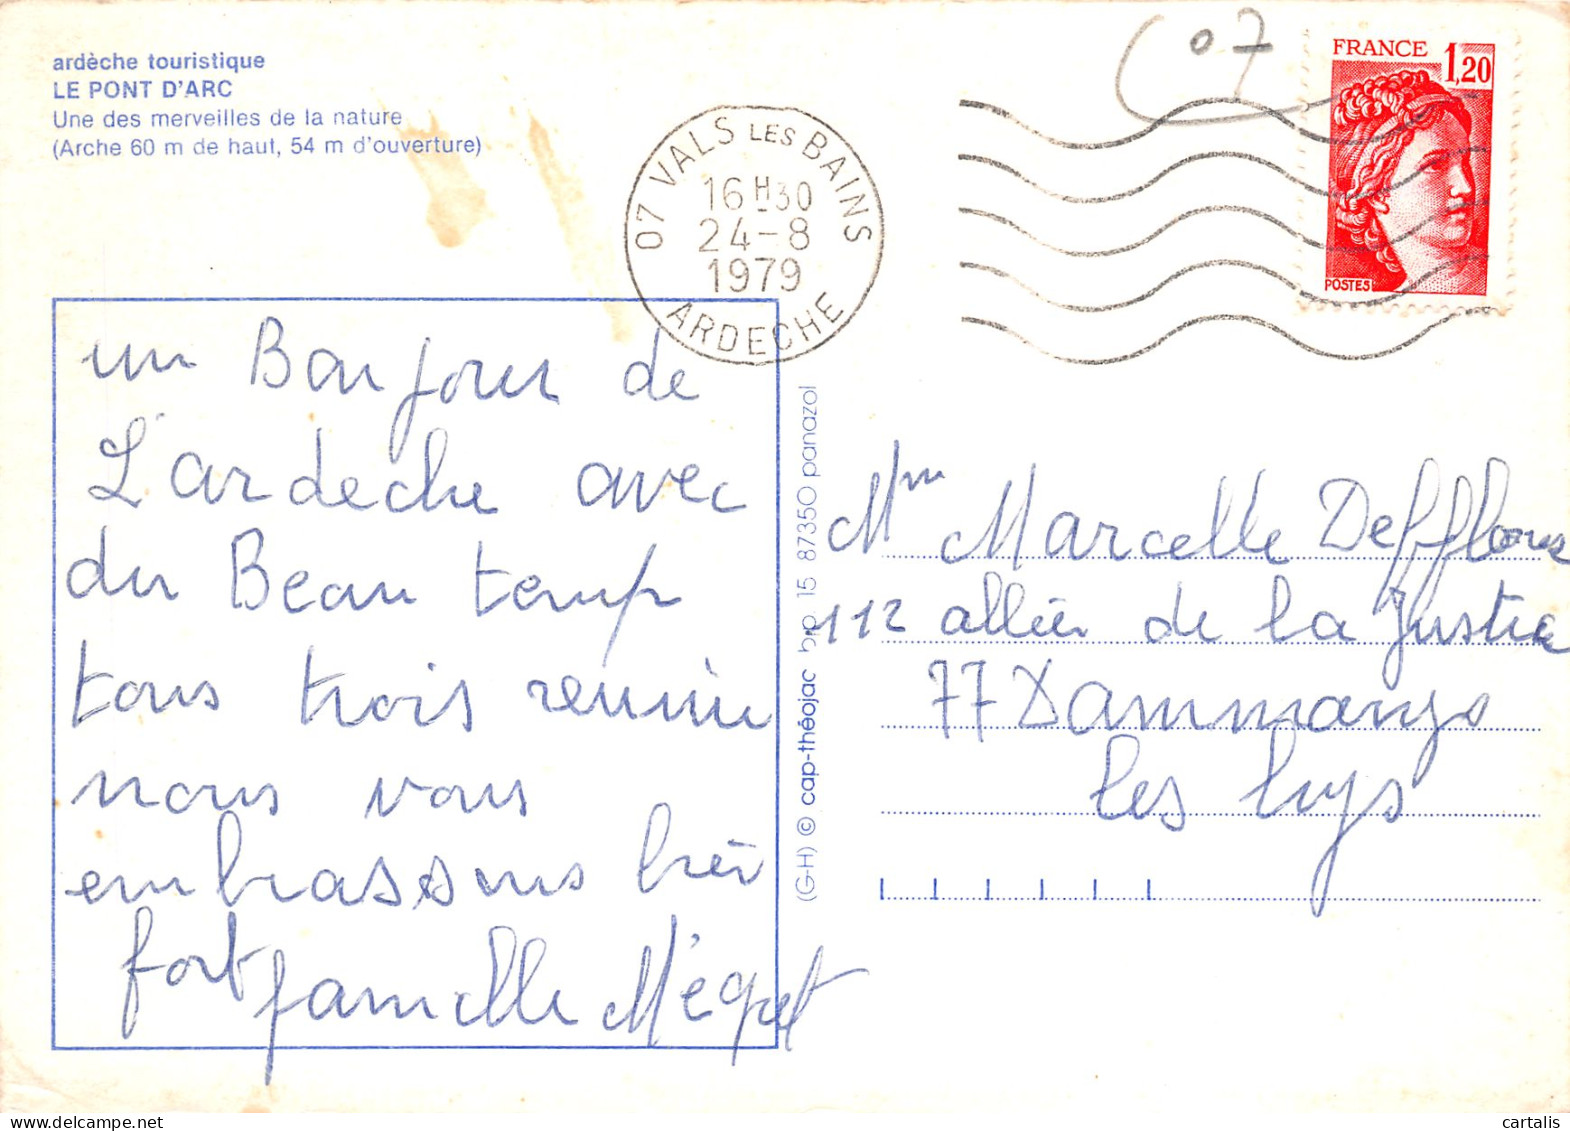 ardèche touristique
LE PONT D'ARC
Une des merveilles de la nature
(Arche 60 m de haut, 54 m d'ouverture)
07 VALS LES BAINS
16H30
24-8
1979
ARDECHE
07
FRANCE 1,20
POSTES
un Bonjour de
L'ardeche avec
du Beau temp
tous trois reunie
nous vous
embrassons bien
fort famille Mégret
(G-H) © cap-théojac b.p. 15 87350 panazol
Mm Marcelle Defflores
112 allée de la Justice
77 Dammarys
les lys
cartalis